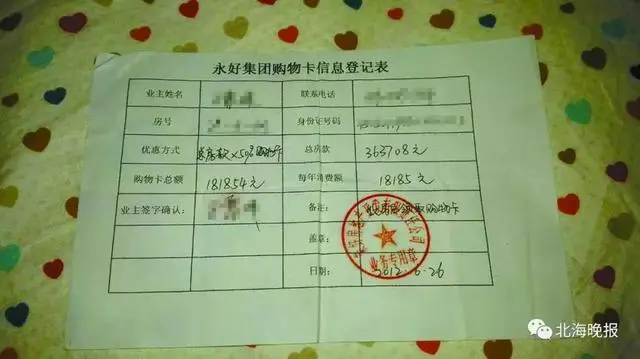 永好集团购物卡信息登记表
业主姓名 联系电话
房号 身份证号码
优惠方式 总房款×50%购物卡 总房款 363708元
购物卡总额 181854元 每年消费额 18185元
业主签字确认： 备注： 领取购物卡
盖章：
业务专用章
日期： 2012.6.26
北海晚报